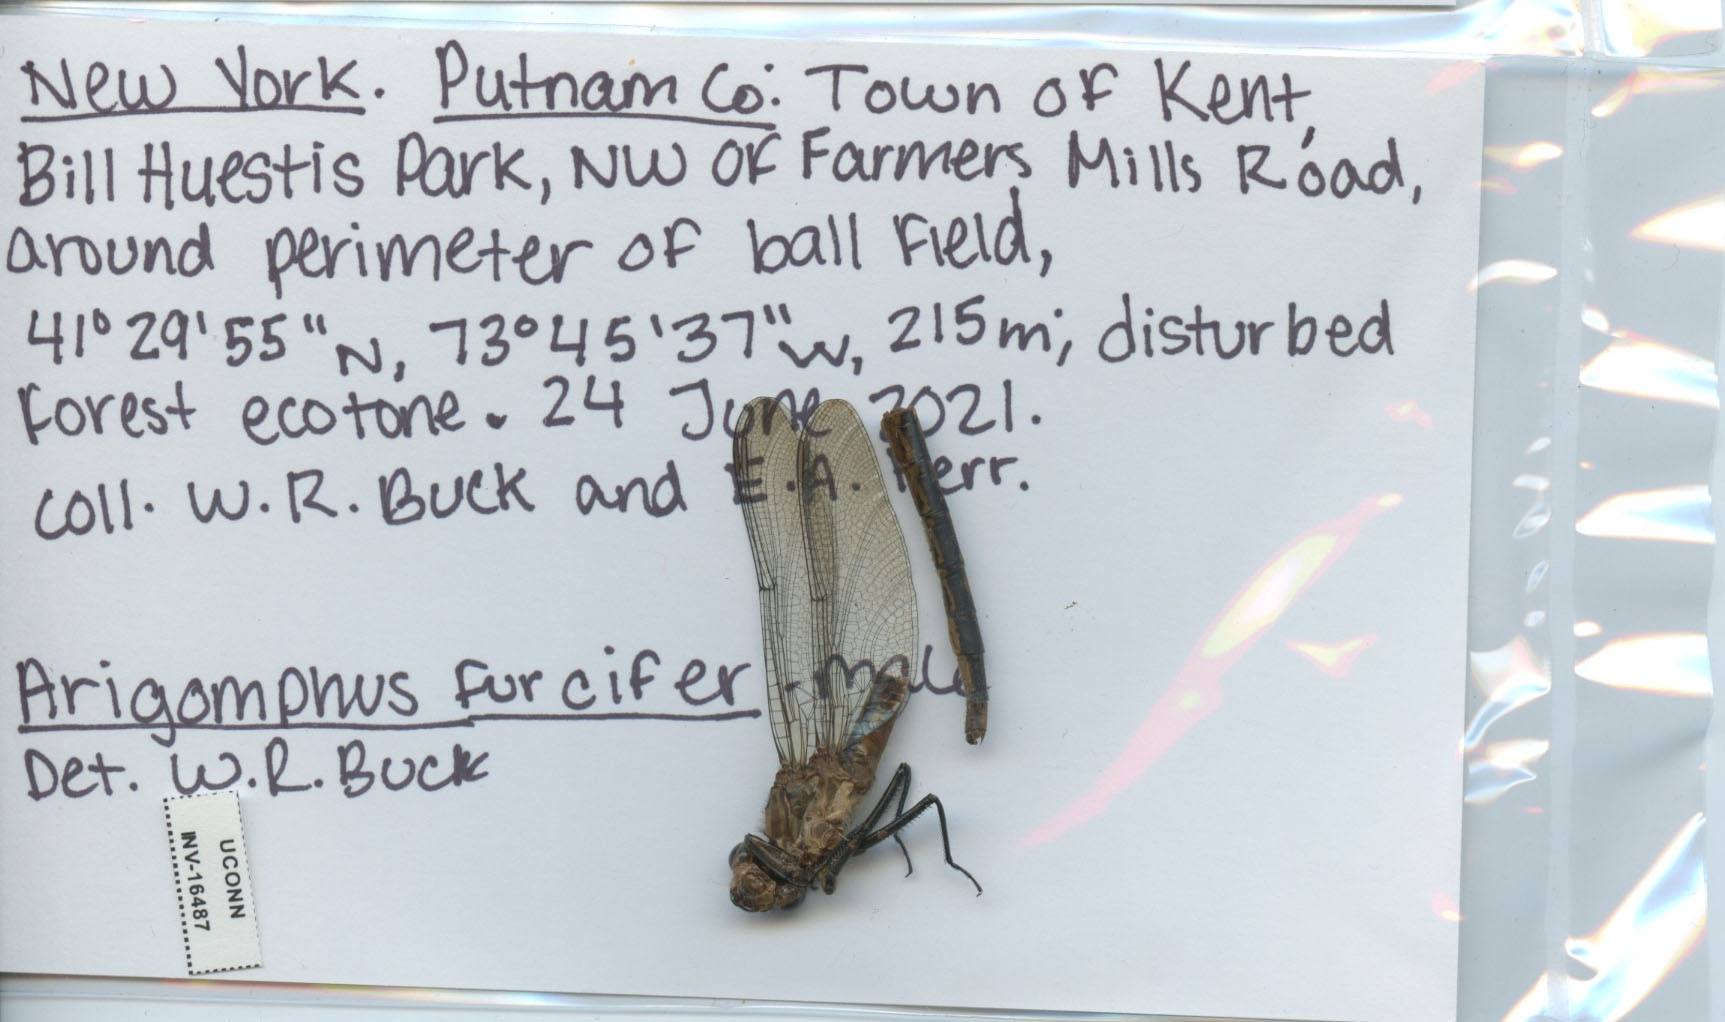 New York. Putnam Co: Town of Kent,
Bill Huestis Park, NW of Farmers Mills Road,
around perimeter of ball field,
41° 29' 55" N, 73° 45' 37" W, 215m; disturbed
forest ecotone. 24 June 2021.
coll. W. R. Buck and E. A.
Arigomphus furcifer - male
Det. W. R. Buck
UCONN
INV-16487